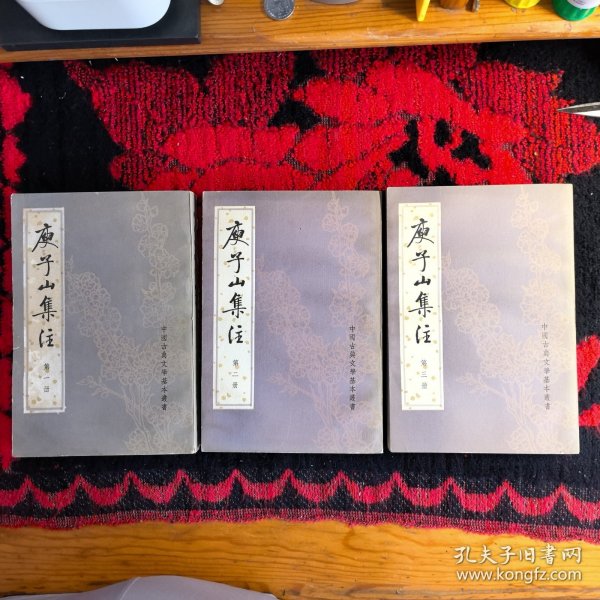 庾子山集注
第一册
中國古典文學基本叢書
庾子山集注
第二册
中國古典文學基本叢書
庾子山集注
第三册
中國古典文學基本叢書
孔夫子旧書网
www.kongfz.com